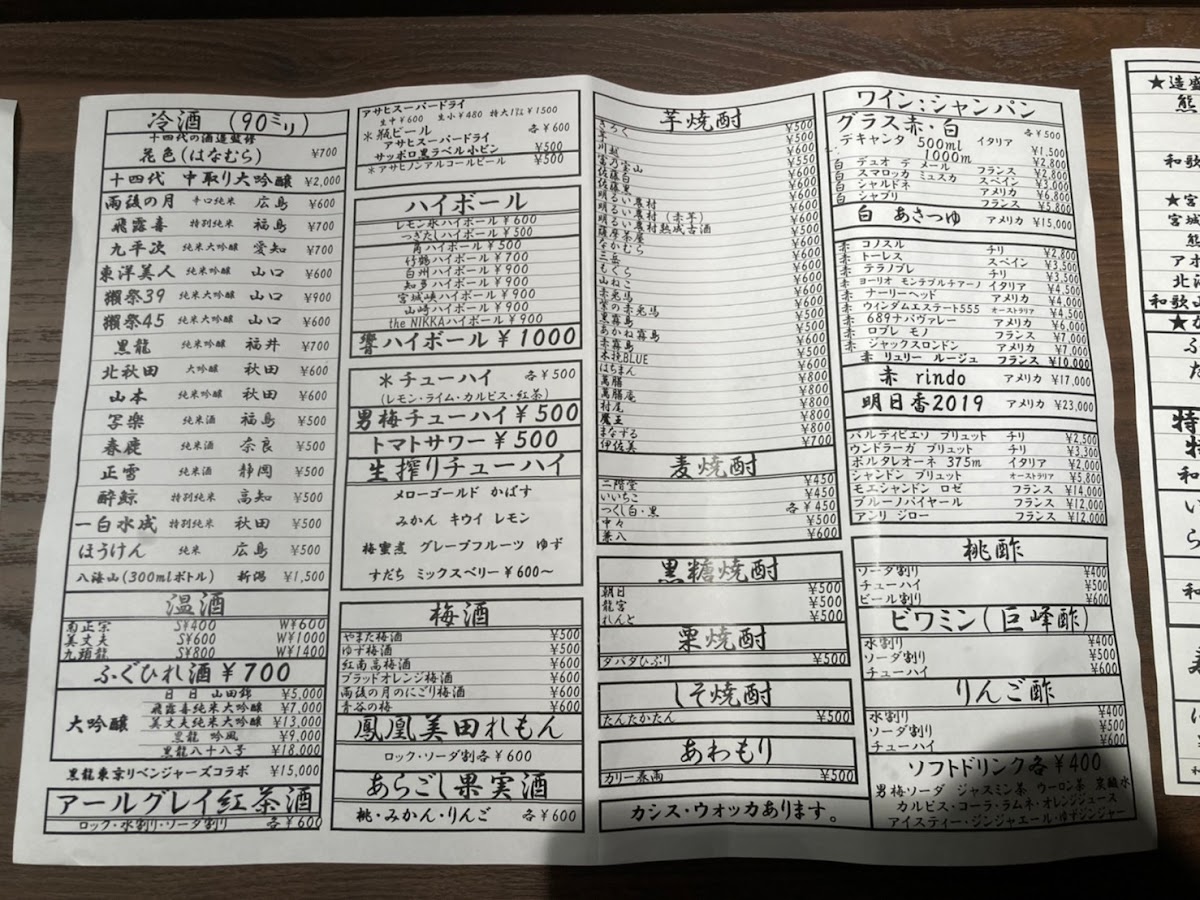 冷酒 (90ミリ)
十四代の酒造監修
花邑(はなむら) ¥700
十四代 中取り大吟醸 ¥2,000
雨後の月 辛口純米 広島 ¥600
飛露喜 特別純米 福島 ¥700
九平次 純米大吟醸 愛知 ¥700
東洋美人 純米吟醸 山口 ¥600
獺祭39 純米大吟醸 山口 ¥900
獺祭45 純米大吟醸 山口 ¥600
黒龍 純米大吟醸 福井 ¥700
北秋田 大吟醸 秋田 ¥600
山本 純米吟醸 秋田 ¥600
写楽 純米酒 福島 ¥500
春鹿 純米酒 奈良 ¥500
正雪 純米酒 静岡 ¥500
酔鯨 特別純米 高知 ¥500
一白水成 特別純米 秋田 ¥500
ほうけん 純米 広島 ¥500
八海山(300mlボトル) 新潟 ¥1,500
温酒
南正宗 S¥400 W¥600
美丈夫 S¥600 W¥1000
九頭龍 S¥800 W¥1400
ふぐひれ酒 ¥700
大吟醸
日日 山田錦 ¥5,000
飛露喜純米大吟醸 ¥7,000
美丈夫純米大吟醸 ¥13,000
黒龍 吟風 ¥9,000
黒龍八十八号 ¥18,000
黒龍東京リベンジャーズコラボ ¥15,000
アールグレイ紅茶酒
ロック・水割り・ソーダ割り 各¥600
アサヒスーパードライ
生中¥600 生小¥480 特大1㍑ ¥1500
*瓶ビール 各¥600
アサヒスーパードライ
サッポロ黒ラベル小ビン ¥500
*アサヒノンアルコールビール ¥500
ハイボール
レモン氷ハイボール ¥600
つぎたしハイボール ¥500
角ハイボール ¥500
竹鶴ハイボール ¥700
白州ハイボール ¥900
知多ハイボール ¥900
宮城峡ハイボール ¥900
山崎ハイボール ¥900
the NIKKAハイボール ¥900
響ハイボール ¥1000
*チューハイ 各¥500
(レモン・ライム・カルピス・紅茶)
男梅チューハイ ¥500
トマトサワー ¥500
生搾りチューハイ
メローゴールド かぼす
みかん キウイ レモン
梅蜜煮 グレープフルーツ ゆず
すだち ミックスベリー ¥600〜
梅酒
やまた梅酒 ¥500
ゆず梅酒 ¥500
紅南高梅酒 ¥600
ブラッドオレンジ梅酒 ¥600
雨後の月のにごり梅酒 ¥600
青谷の梅 ¥600
鳳凰美田れもん
ロック・ソーダ割各¥600
あらごし果実酒
桃・みかん・りんご 各¥600
芋焼酎
¥500
¥500
川越 ¥600
富乃宝山 ¥600
佐藤白 ¥600
佐藤黒 ¥600
明るい農村 ¥600
明るい農村(赤芋) ¥600
明るい農村熟成古酒 ¥600
薩摩茶屋 ¥500
なかむら ¥600
三岳 ¥600
もぐら ¥600
山ねこ ¥600
赤兎馬 ¥600
紫の赤兎馬 ¥600
黒霧島 ¥500
あかね霧島 ¥600
赤霧島 ¥600
木挽BLUE ¥500
はちまん ¥600
萬膳 ¥800
萬膳庵 ¥800
村尾 ¥800
魔王 ¥800
まなずる ¥800
伊佐美 ¥700
麦焼酎
二階堂 ¥450
いいちこ ¥450
つくし白・黒 各¥450
中々 ¥500
兼八 ¥600
黒糖焼酎
朝日 ¥500
龍宮 ¥500
れんと ¥500
栗焼酎
ダバダひぶり ¥500
しそ焼酎
たんたかたん ¥500
あわもり
カリー春雨 ¥500
カシス・ウォッカあります。
ワイン:シャンパン
グラス赤・白 各¥500
デキャンタ 500ml イタリア ¥1,500
1000m ¥2,800
白 デュオ デ メール フランス ¥2,800
白 スマロッカ ミュスカ スペイン ¥3,000
白 シャルドネ アメリカ ¥6,800
白 シャブリ フランス ¥5,800
白 あさつゆ アメリカ ¥15,000
赤 コノスル チリ ¥2,800
赤 トーレス スペイン ¥3,500
赤 テラノブレ チリ ¥3,500
赤 ヨーリオ モンテプルチアーノ イタリア ¥4,500
赤 ナーリーヘッド アメリカ ¥4,000
赤 ウィンダムエステート555 オーストラリア ¥4,500
赤 689ナパヴァレー アメリカ ¥6,000
赤 ロブレ モノ フランス ¥7,000
赤 ジャックスロンドン アメリカ ¥7,000
赤 リュリー ルージュ フランス ¥10,000
赤 rindo アメリカ ¥17,000
明日香2019 アメリカ ¥23,000
バルディビエソ ブリュット チリ ¥2,500
ウンドラーガ ブリュット チリ ¥3,300
ボルタレオーネ 375m イタリア ¥2,000
シャンドン ブリュット オーストラリア ¥5,800
モエシャンドン ロゼ フランス ¥14,000
ブルーノパイヤール フランス ¥12,000
アンリ ジロー フランス ¥12,000
桃酢
ソーダ割り ¥400
チューハイ ¥500
ビール割り ¥600
ビワミン(巨峰酢)
水割り ¥400
ソーダ割り ¥500
チューハイ ¥600
りんご酢
水割り ¥400
ソーダ割り ¥500
チューハイ ¥600
ソフトドリンク各¥400
男梅ソーダ ジャスミン茶 ウーロン茶 炭酸水
カルピス・コーラ・ラムネ・オレンジジュース
アイスティー・ジンジャエール・ゆずジンジャー
★造盛
熊
和歌
★宮
宮城
熊
アオ
北海
和歌山
特